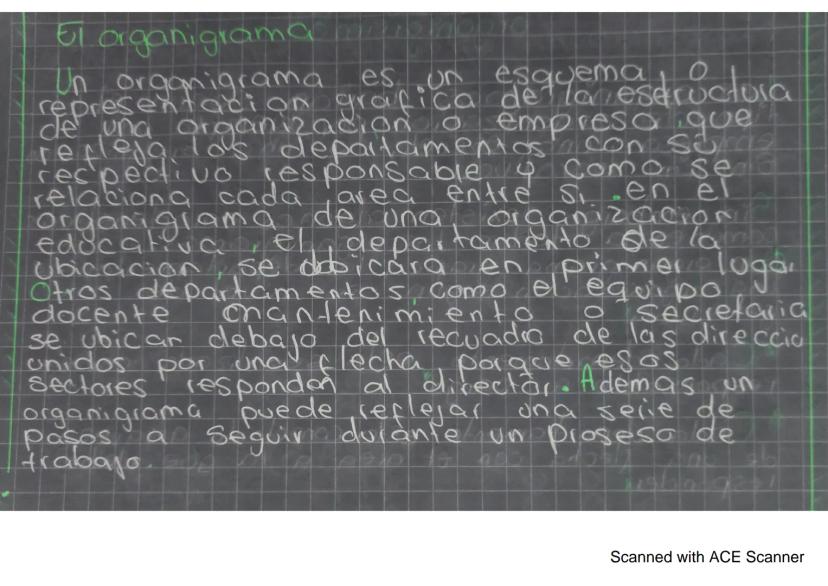 El organigrama
Un organigrama es un esquema o
representacion grafica de la estructura
de una organizacion o empresa que
refleja, los departamentos con su
respectivo responsable y como se
relaciona cada area entre si. en el
organigrama de una organizacion
educativa, el departamento de la
ubicacian, se ubicara en primer lugar
Otros departamentos, como el equipo
docente mantenimiento o secretaria
se ubican debajo del recuadro de las direccio
unidos por una flecha porque esos
sectores responden al director. Ademas un
organigrama puede reflejar una serie de
pasos a seguir durante un proseso de
trabajo.
Scanned with ACE Scanner